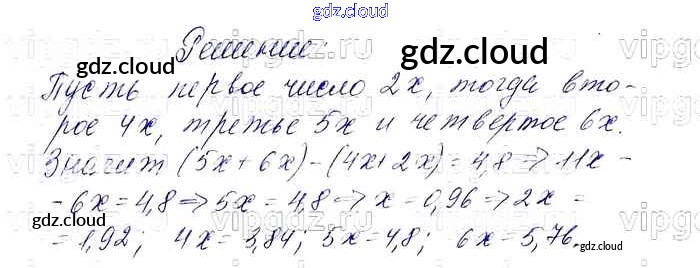 gdz.cloud
Решение:
gdz.cloud
gdz.cloud
Пусть первое число 2x, тогда вто-
рое 4x, третье 5x и четвертое 6x.
Значит (5x + 6x) - (4x + 2x) = 4,8 ⇒ 11x -
- 6x = 4,8 ⇒ 5x = 4,8 ⇒ x = 0,96 ⇒ 2x =
gdz.cloud
= 1,92; 4x = 3,84; 5x = 4,8; 6x = 5,76.
gdz.cloud